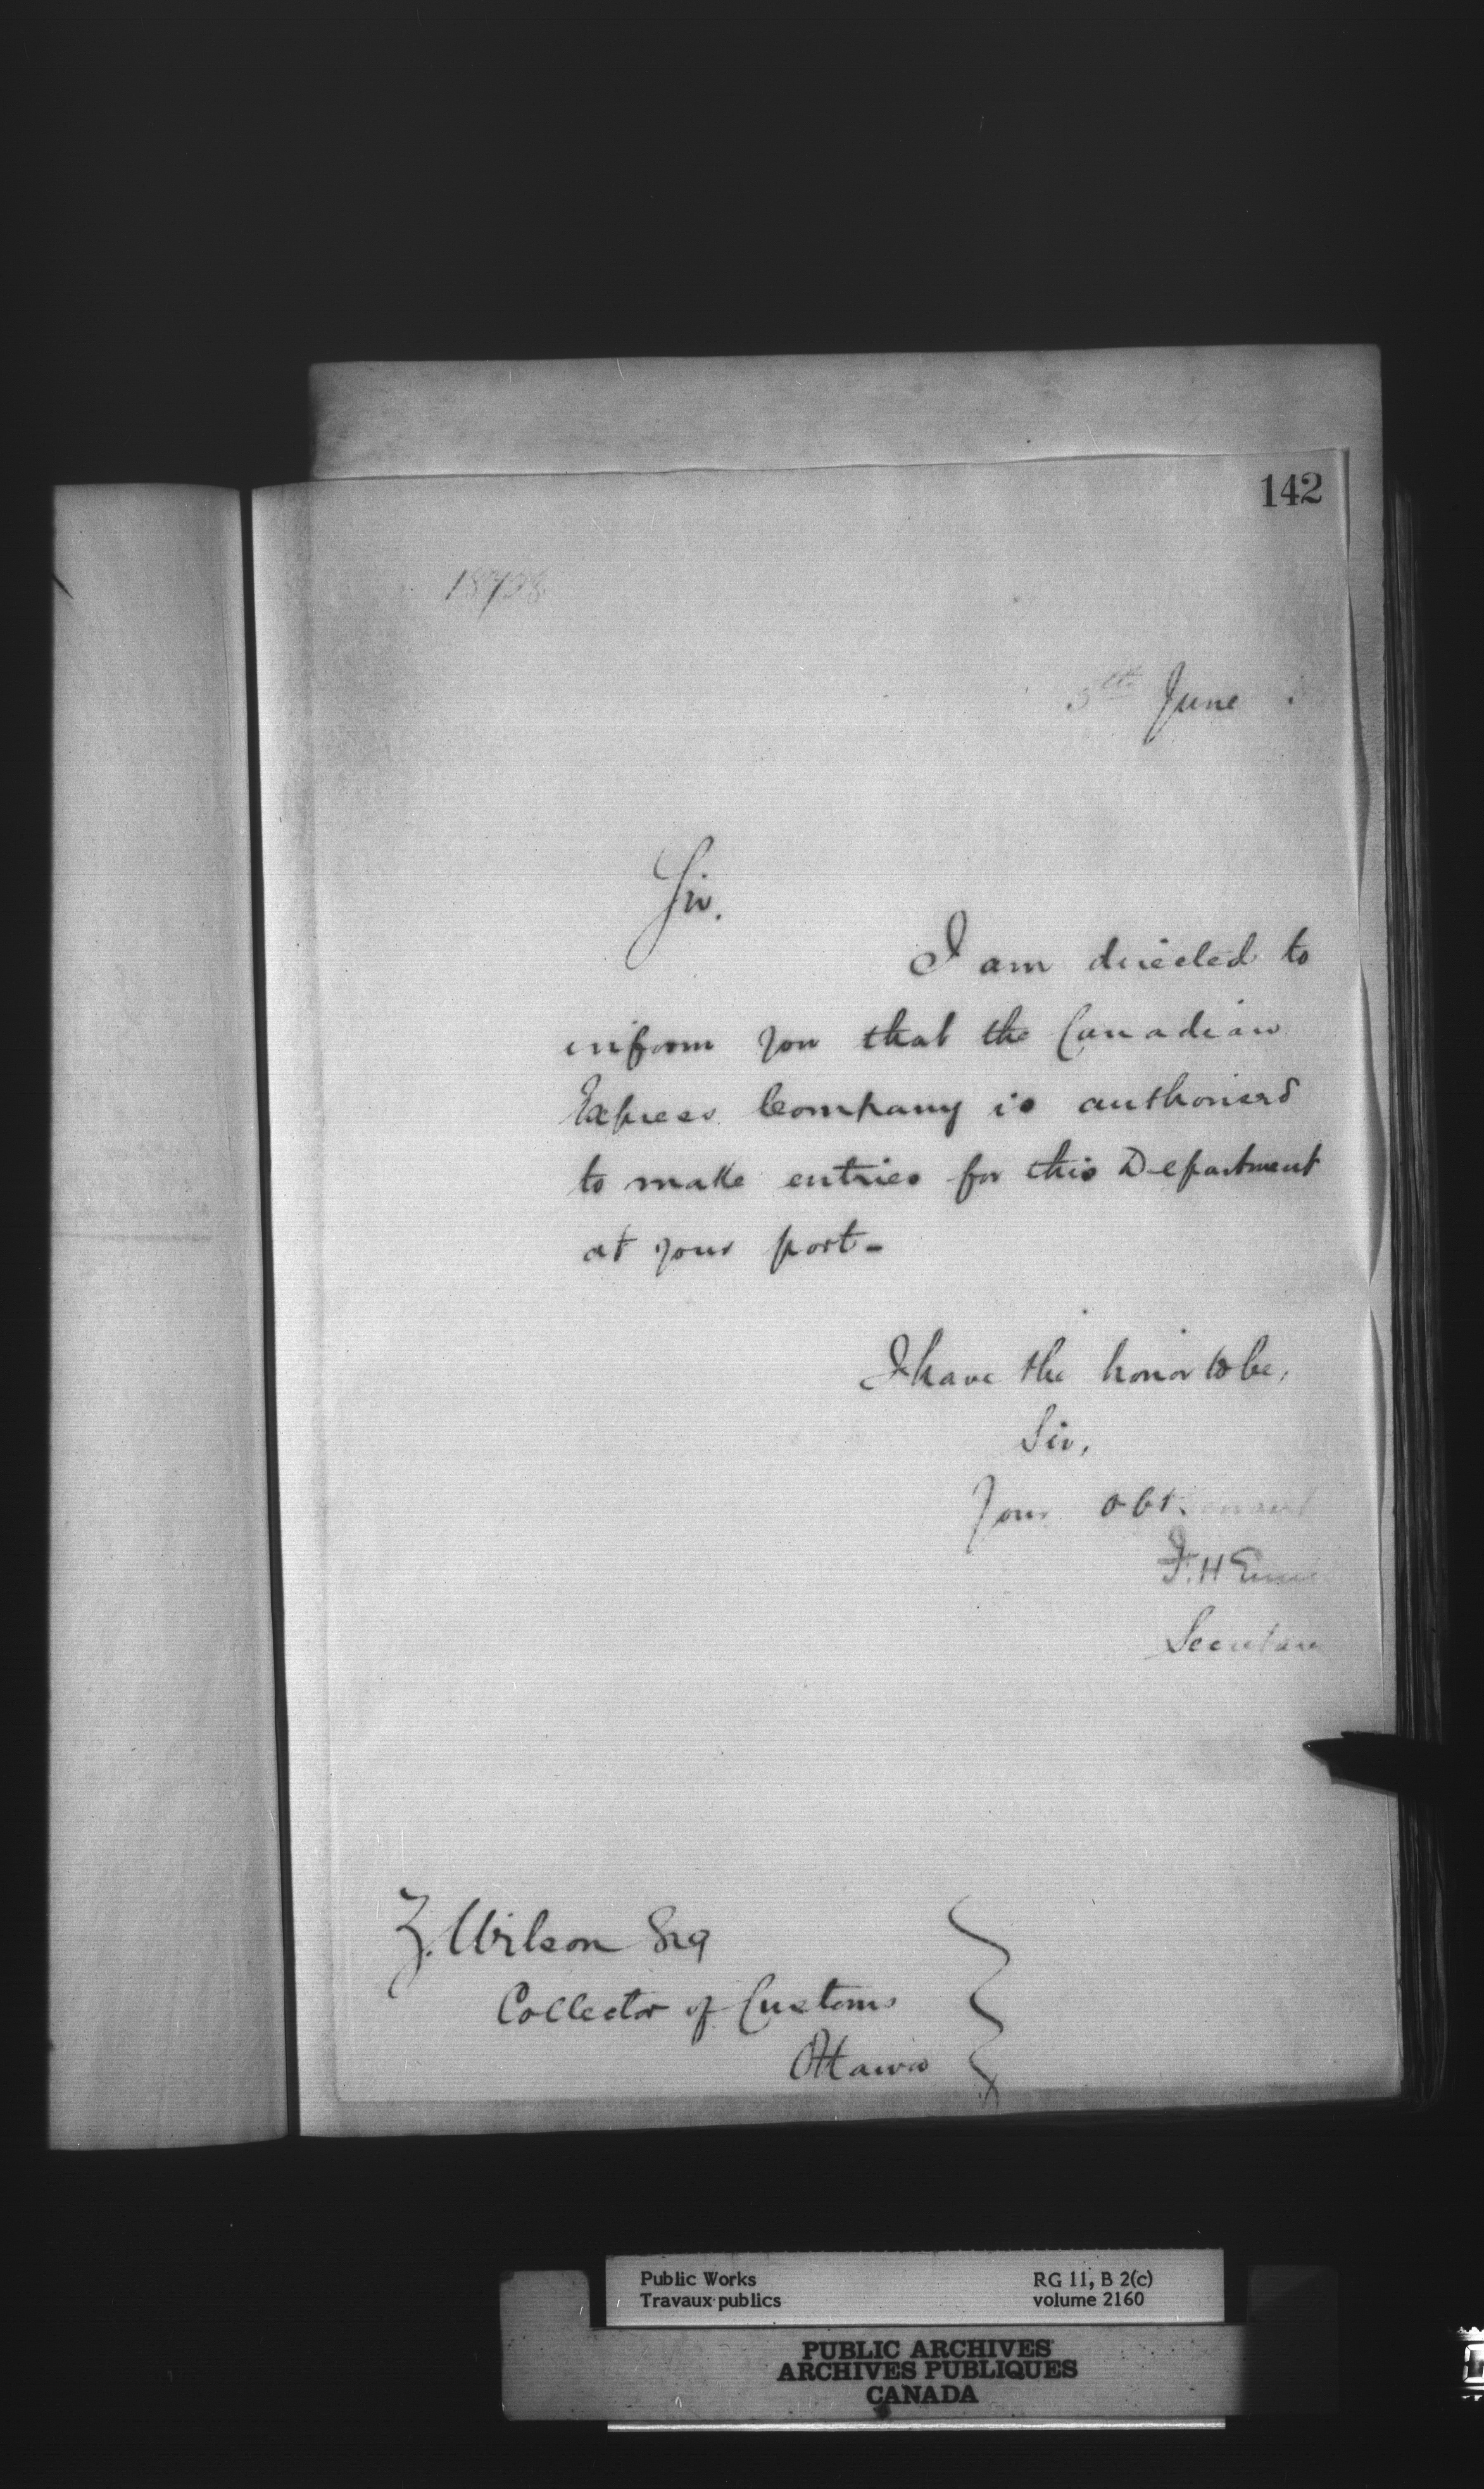 142
5th June
Sir.
I am directed to
inform you that the Canadian
Express Company is authorised
to make entries for this Department
at your port-
I have the honor to be,
Sir,
Your obt.
F. H
Secretary
Z. Wilson Esq
Collector of Customs
Ottawa
Public Works
Travaux publics
RG 11, B 2(c)
volume 2160
PUBLIC ARCHIVES
ARCHIVES PUBLIQUES
CANADA